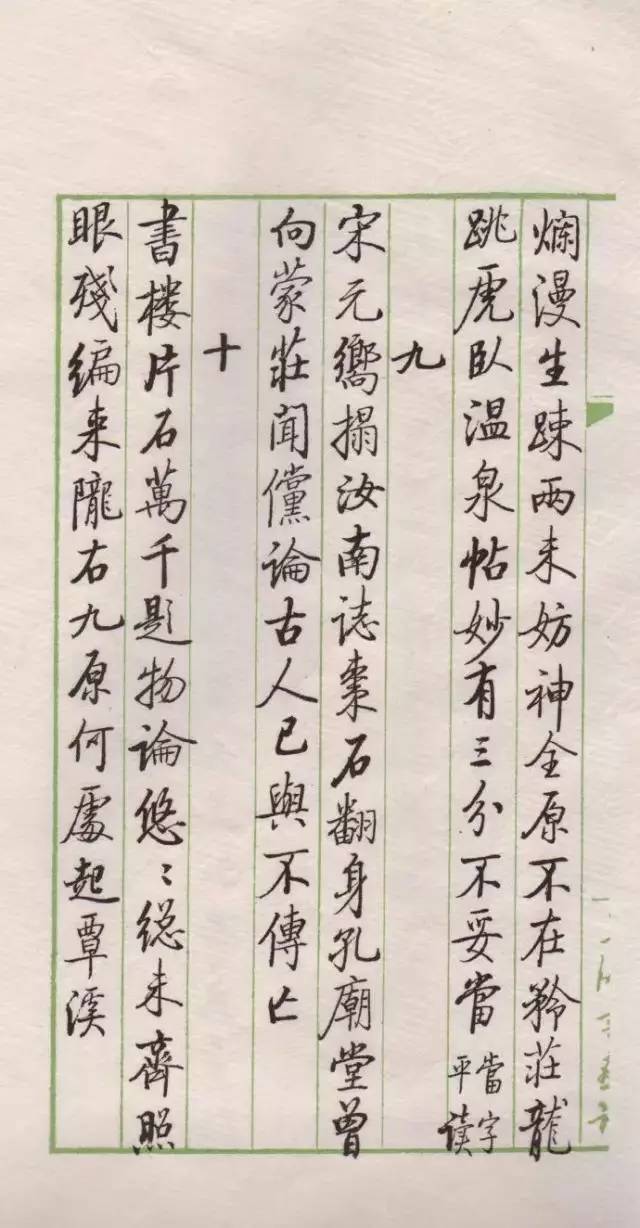 爛漫生疎兩未妨神全原不在矜莊龍
跳虎臥温泉帖妙有三分不妥當 當字平读
九
宋元嚮搨汝南誌棗石翻身孔廟堂曾
向蒙莊聞儻論古人已與不傳亡
十
書楼片石萬千题物論悠〻總未齊照
眼殘编来隴右九原何處起覃溪